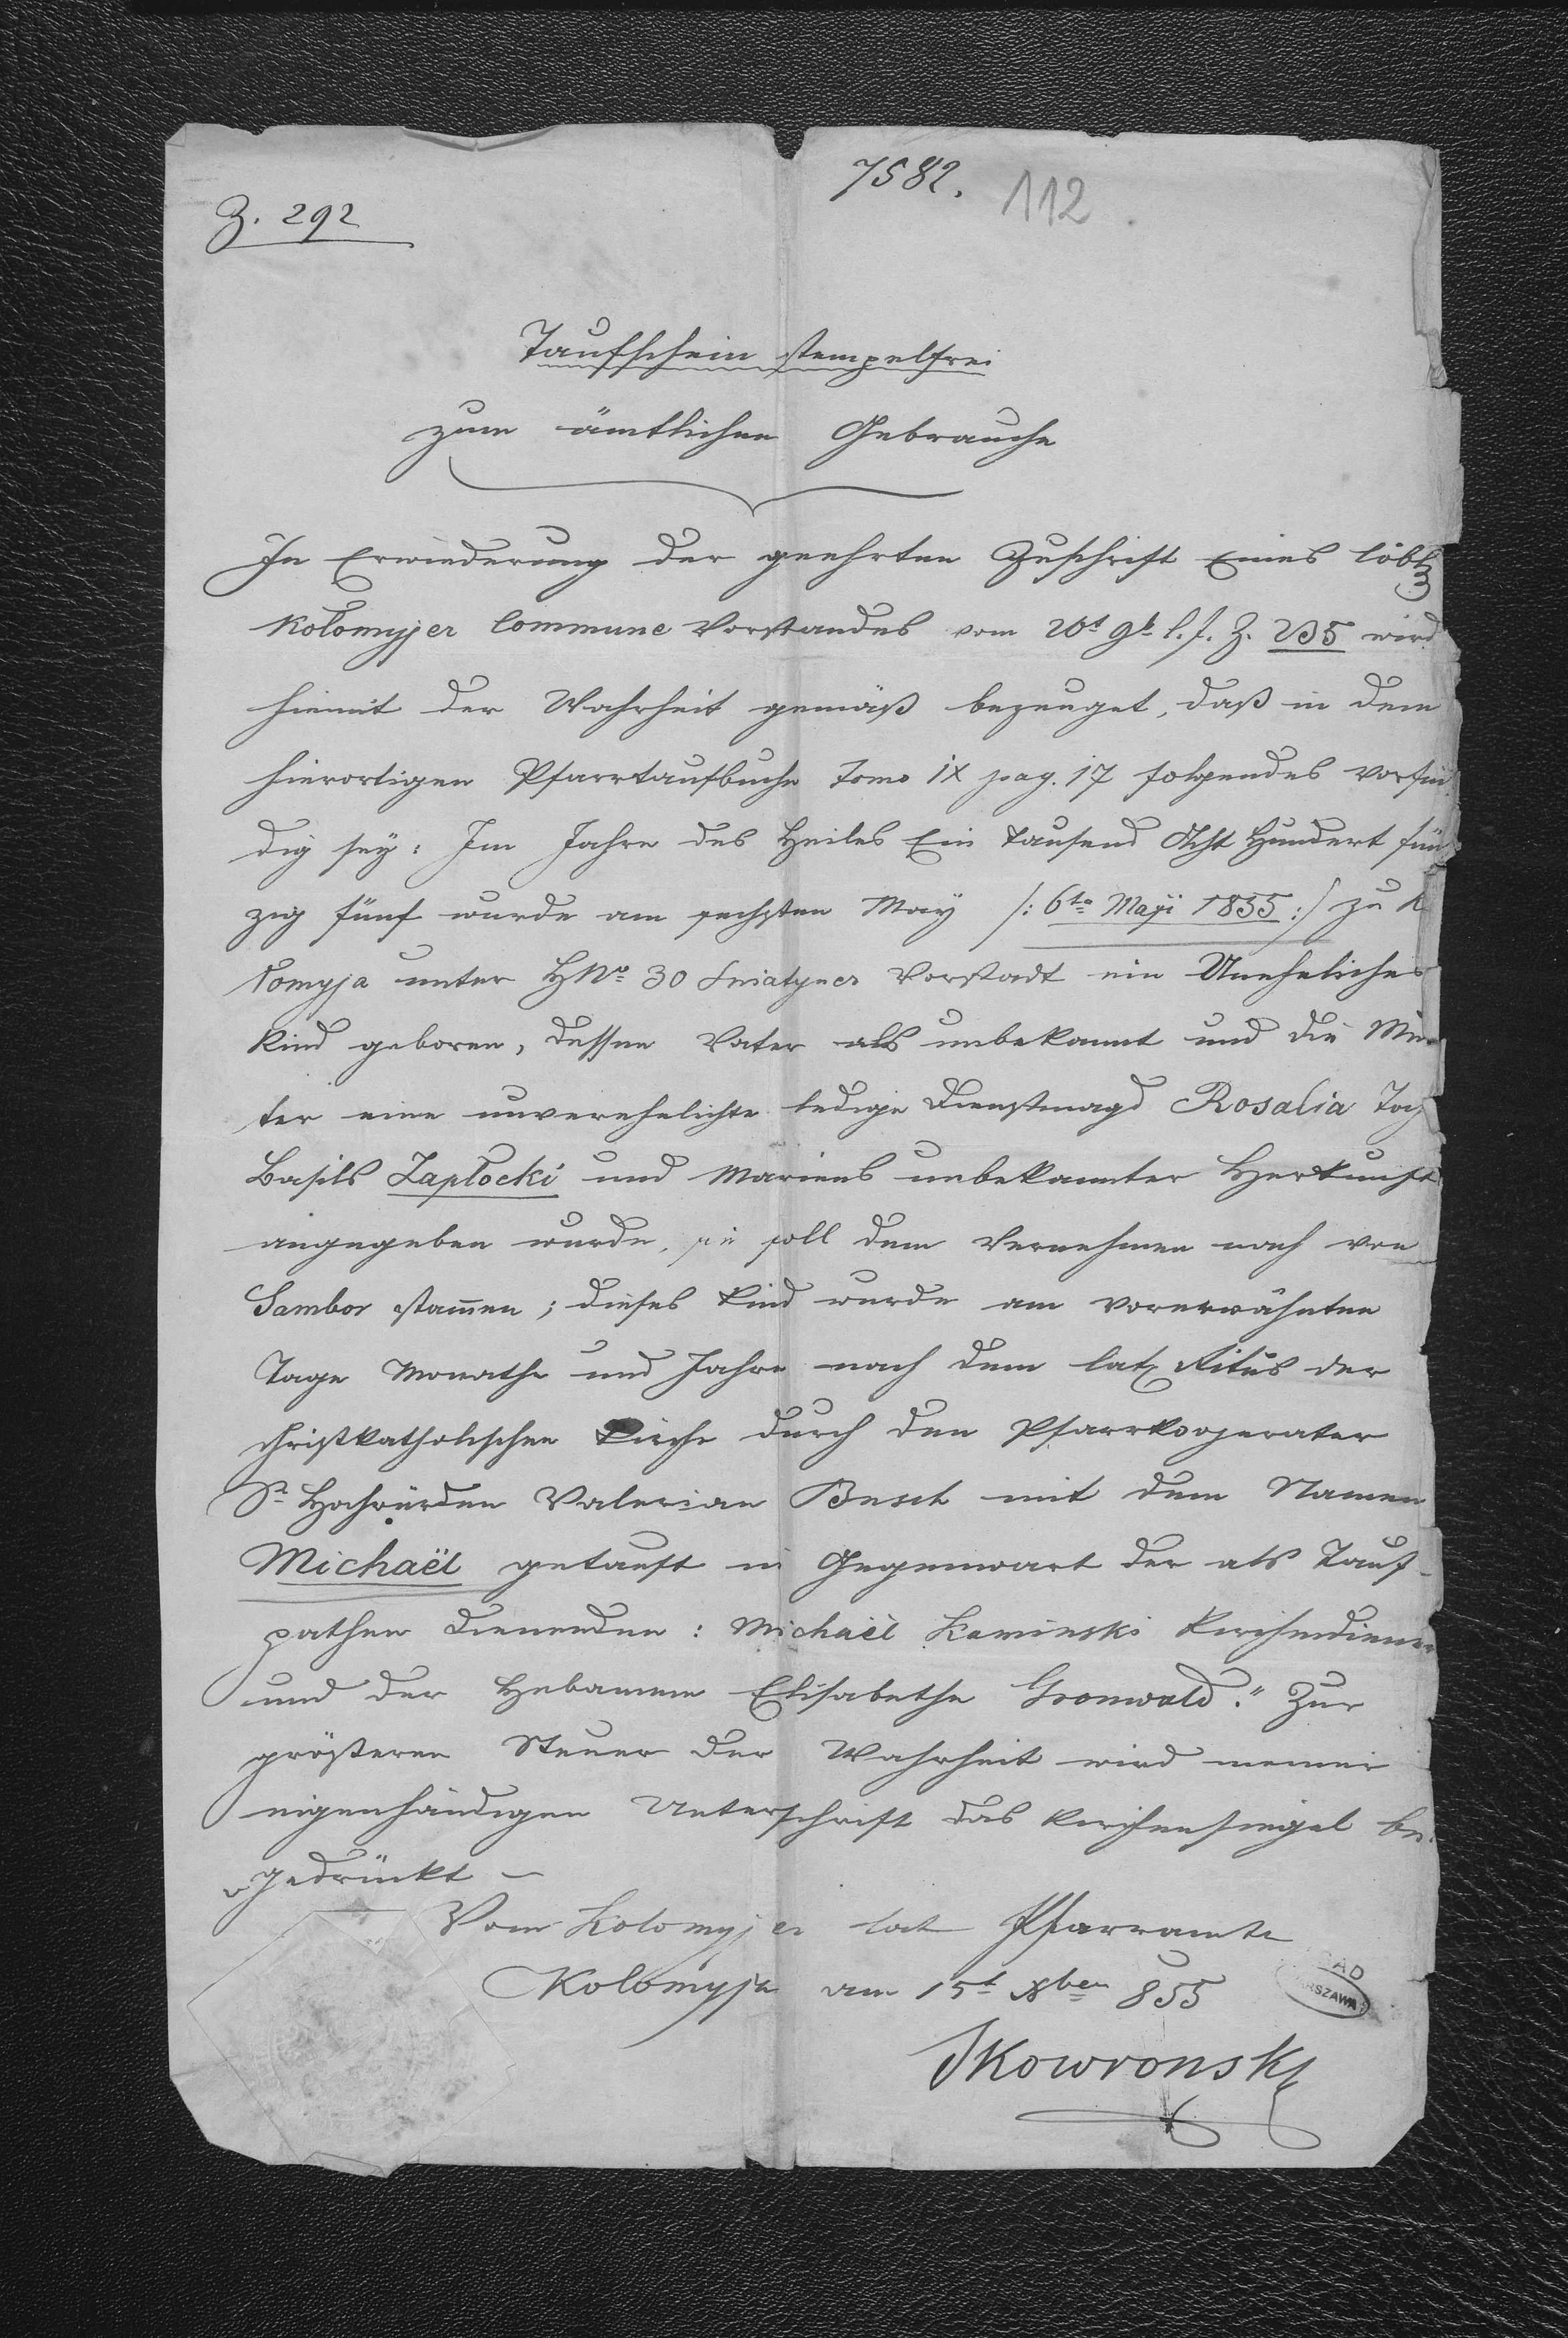 7582.
112
Z. 292
Taufschein stempelfrei
zum ämtlichen Gebrauche
In Erwiederung der geehrten Zuschrift Eines löbl
Kołomyjer Commune Vorstandes vom 20t 9b l. J. Z. 235 wird
hiemit der Wahrheit gemäß bezeuget, daß in dem
hierortigen Pfarrtaufbuche Tomo IX pag. 17 folgendes vorfin
dig sey: Im Jahre des Heiles Ein Tausend Acht Hundert fünf
zig fünf wurde am sechsten May /: 6ta Maji 1855 :/ zu K
łomyja unter HNo 30 Sniatyner Vorstadt ein Uneheliches
Kind geboren, dessen Vater als unbekannt und die Mu
ter eine unverehelichte ledige Dienstmagd Rosalia Toch
Basils Zapłocki und Mariens unbekannter Herkunft
angegeben wurde, sie soll dem Vernehmen nach von
Sambor stammen; dieses Kind wurde am vorerwähnten
Tage Monathe und Jahre nach dem lat. Ritus der
christkatholischen Kirche durch den Pfarrkooperator
Sr Hochwürden Valerian Besch mit dem Namen
Michaël getauft in Gegenwart der als Tauf-
pathen dienenden: Michaël Kaminski Kirchendiener
und der Hebamme Elisabethe Gronwald." Zur
größeren Steuer der Wahrheit wird meiner
eigenhändigen Unterschrift das Kirchensiegel bei
gedrückt –
Vom Kolomyjer lat Pfarramte
Kolomyja am 15t Xber 855
Skowronski
AGAD
WARSZAWA